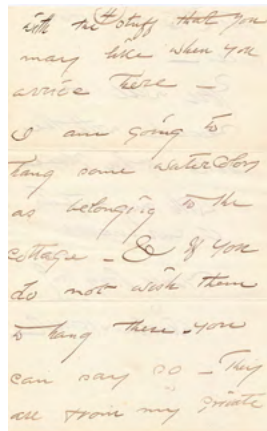 with the stuff that you
may like when you
arrive there —
I am going to
hang some water Colors
as belonging to the
cottage — & if you
do not wish them
to hang there you
can say so — They
are from my private